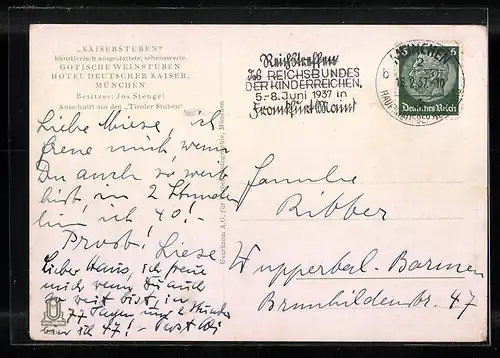 „KAISERSTUBEN"
künstlerisch ausgestattete, sehenswerte
GOTISCHE WEINSTUBEN
HOTEL DEUTSCHER KAISER,
MÜNCHEN
Besitzer: Jos. Stengel
Ausschnitt aus den „Tiroler Stuben"
Liebe Miese, ich
freue mich, wenn
Du auch so weit
bist, in 2 Stunden
bin ich 40! -
Prost! Liese
Lieber Hans, ich freue
mich wenn Du auch
so weit bist, in
77 Tagen und 2 Stunden
bin ich 47! - Prost
Uvachrom A.G. für Farbenphotographie, München
Reichstreffen
des REICHSBUNDES
DER KINDERREICHEN,
5.-8. Juni 1937 in
Frankfurt Main
MÜNCHEN
b
6
Deutsches Reich
Familie
Ribber
Wuppertal-Barmen
Brunhildenstr. 47
U